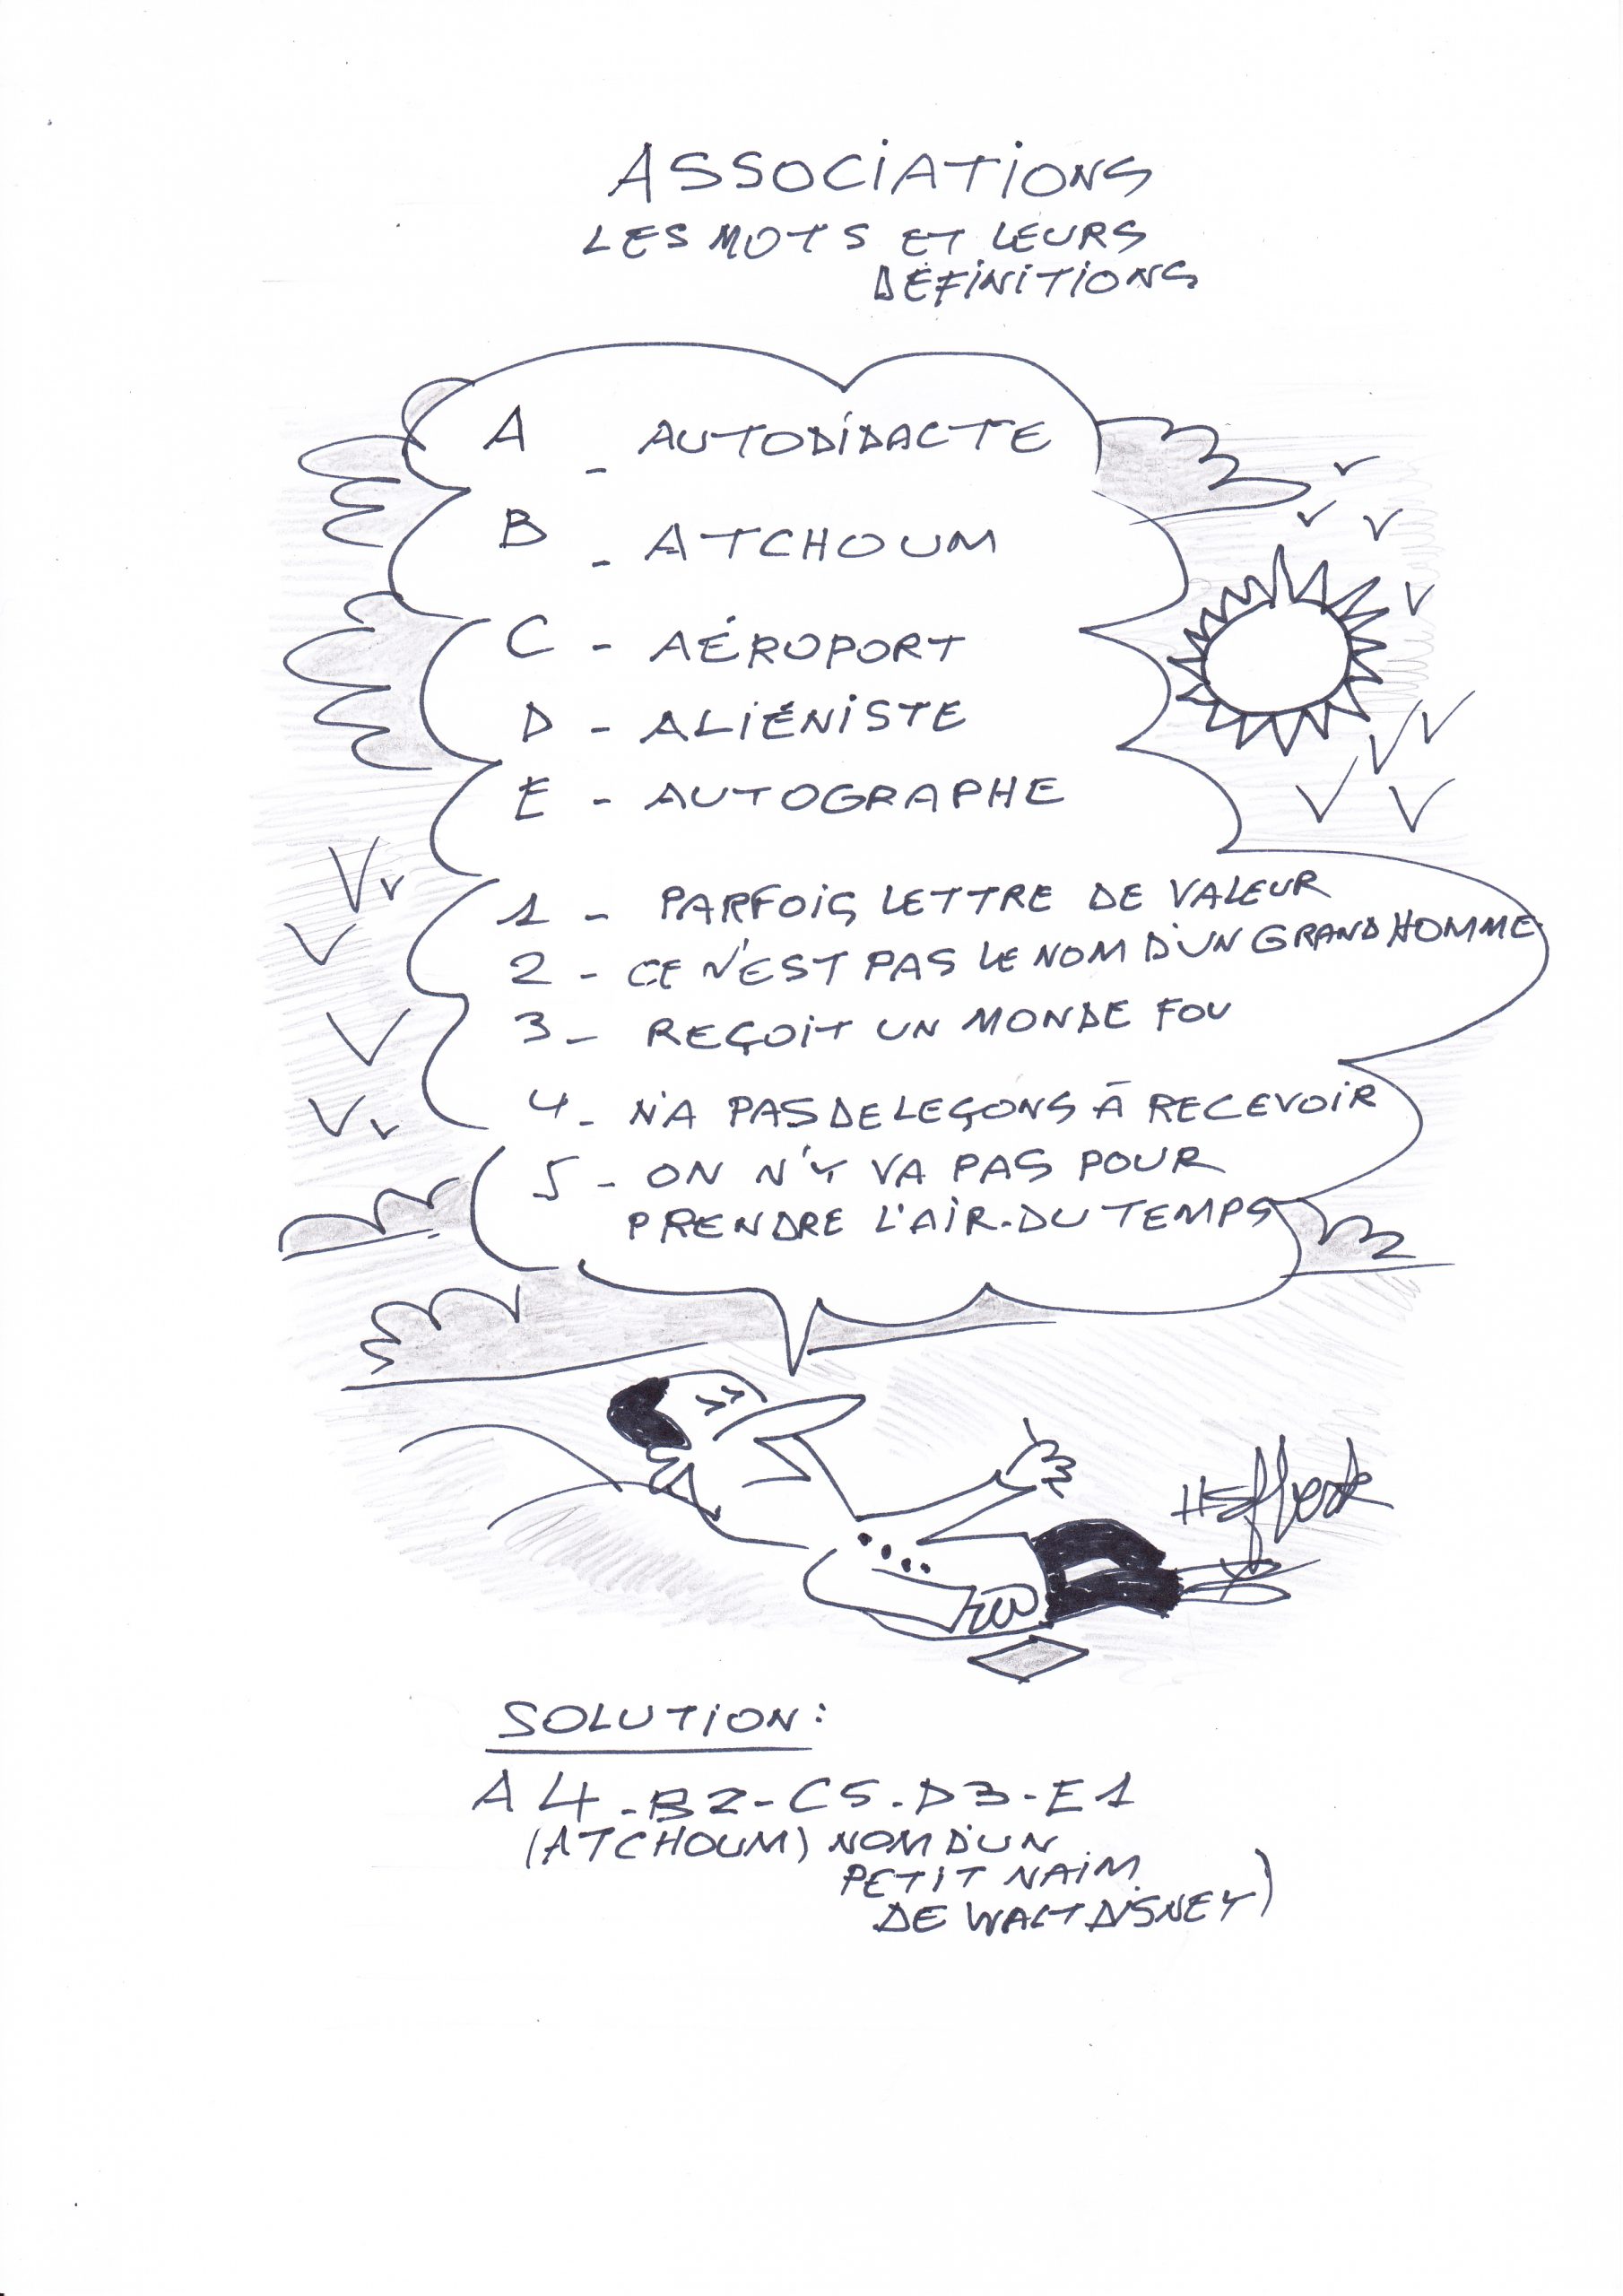 ASSOCIATIONS
LES MOTS ET LEURS
DÉFINITIONS
A - AUTODIDACTE
B - ATCHOUM
C - AÉROPORT
D - ALIÉNISTE
E - AUTOGRAPHE
1 - PARFOIS LETTRE DE VALEUR
2 - CE N'EST PAS LE NOM D'UN GRAND HOMME
3 - REÇOIT UN MONDE FOU
4 - N'A PAS DE LEÇONS À RECEVOIR
5 - ON N'Y VA PAS POUR
PRENDRE L'AIR-DU TEMPS
SOLUTION:
A4-B2-C5-D3-E1
(ATCHOUM) NOM D'UN
PETIT NAIM
DE WALT DISNEY)